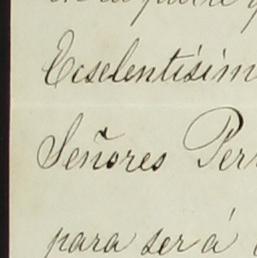 Ecselentisim
Señores Per
para será